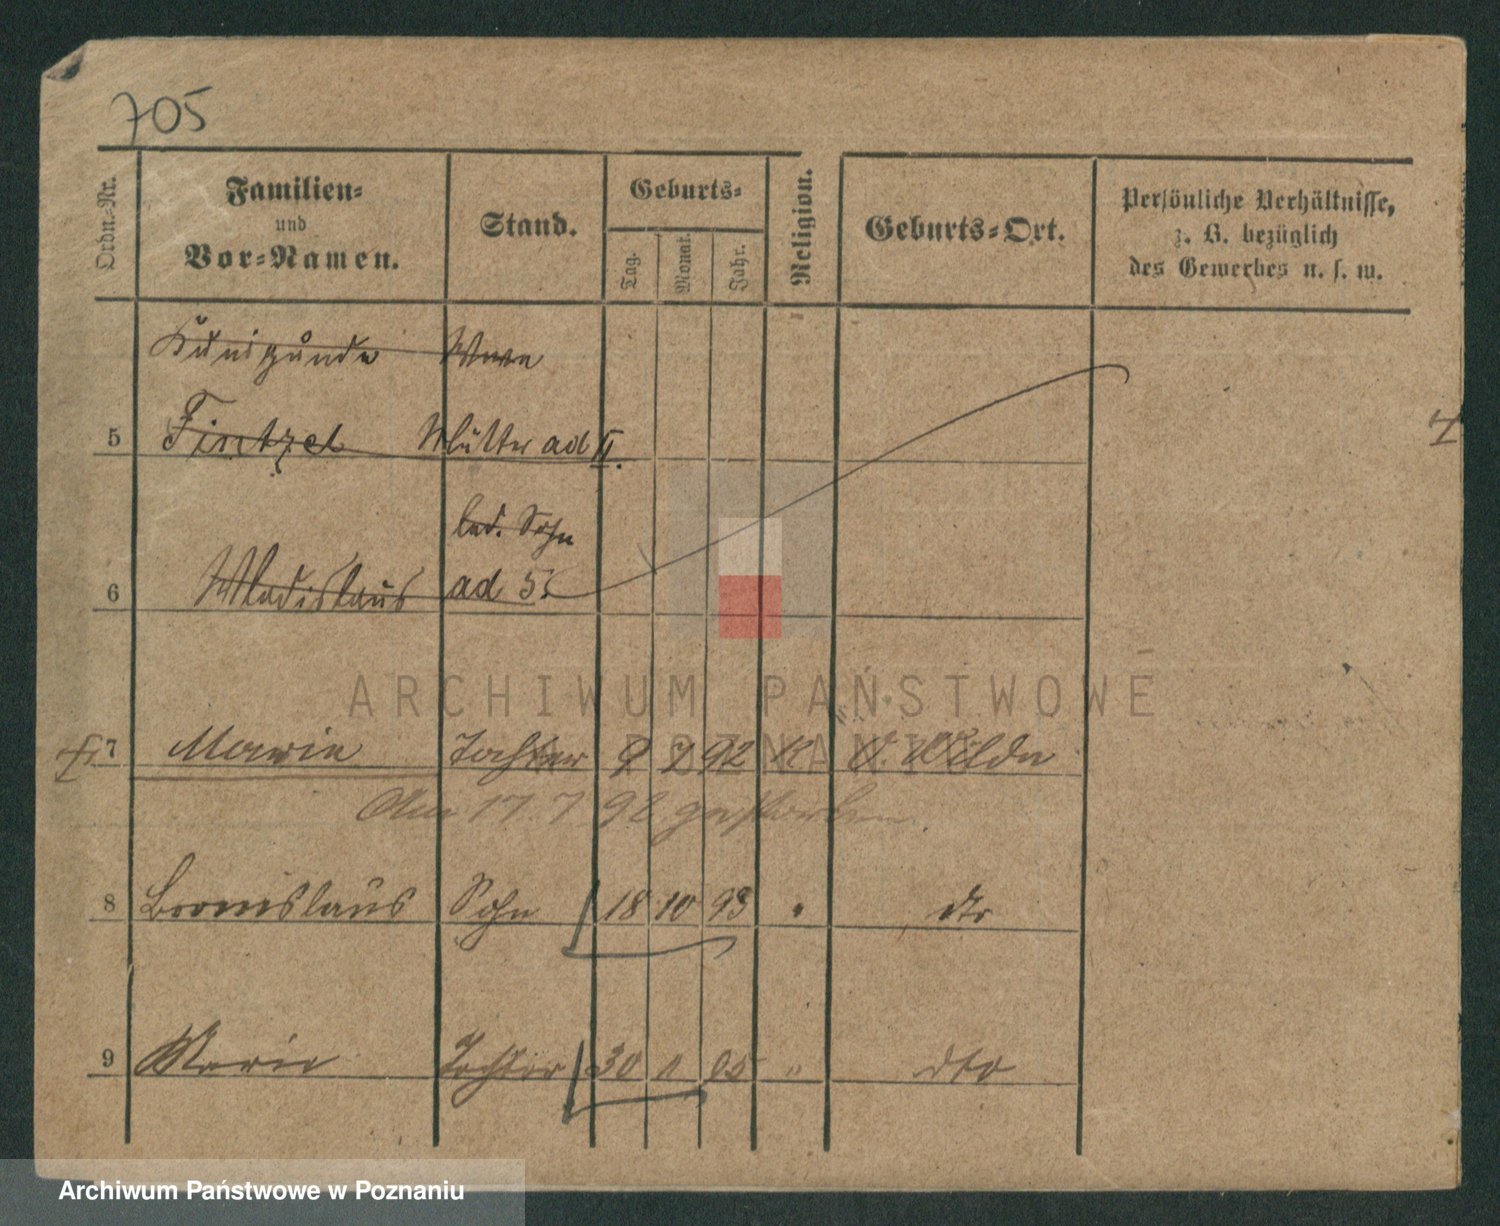 705
Ordn.-Nr.
Familien-
und
Vor-Namen.
Stand.
Geburts-
Tag.
Monat.
Jahr.
Religion.
Geburts-Ort.
Persönliche Verhältnisse,
z. B. bezüglich
des Gewerbes u. s. w.
Kunigunde
5 Fintzel Mutter ad II.
led. Sohn
6 Wladislaus ad 5.
7 Marie Tochter 9 7 92 K O. Wilda
Am 17. 7. 92 gestorben
8 Bronislaus Sohn 18 10 93 " dto
9 Marie Tochter 30 11 95 " dto
ARCHIWUM PAŃSTWOWE
W POZNANIU
Archiwum Państwowe w Poznaniu